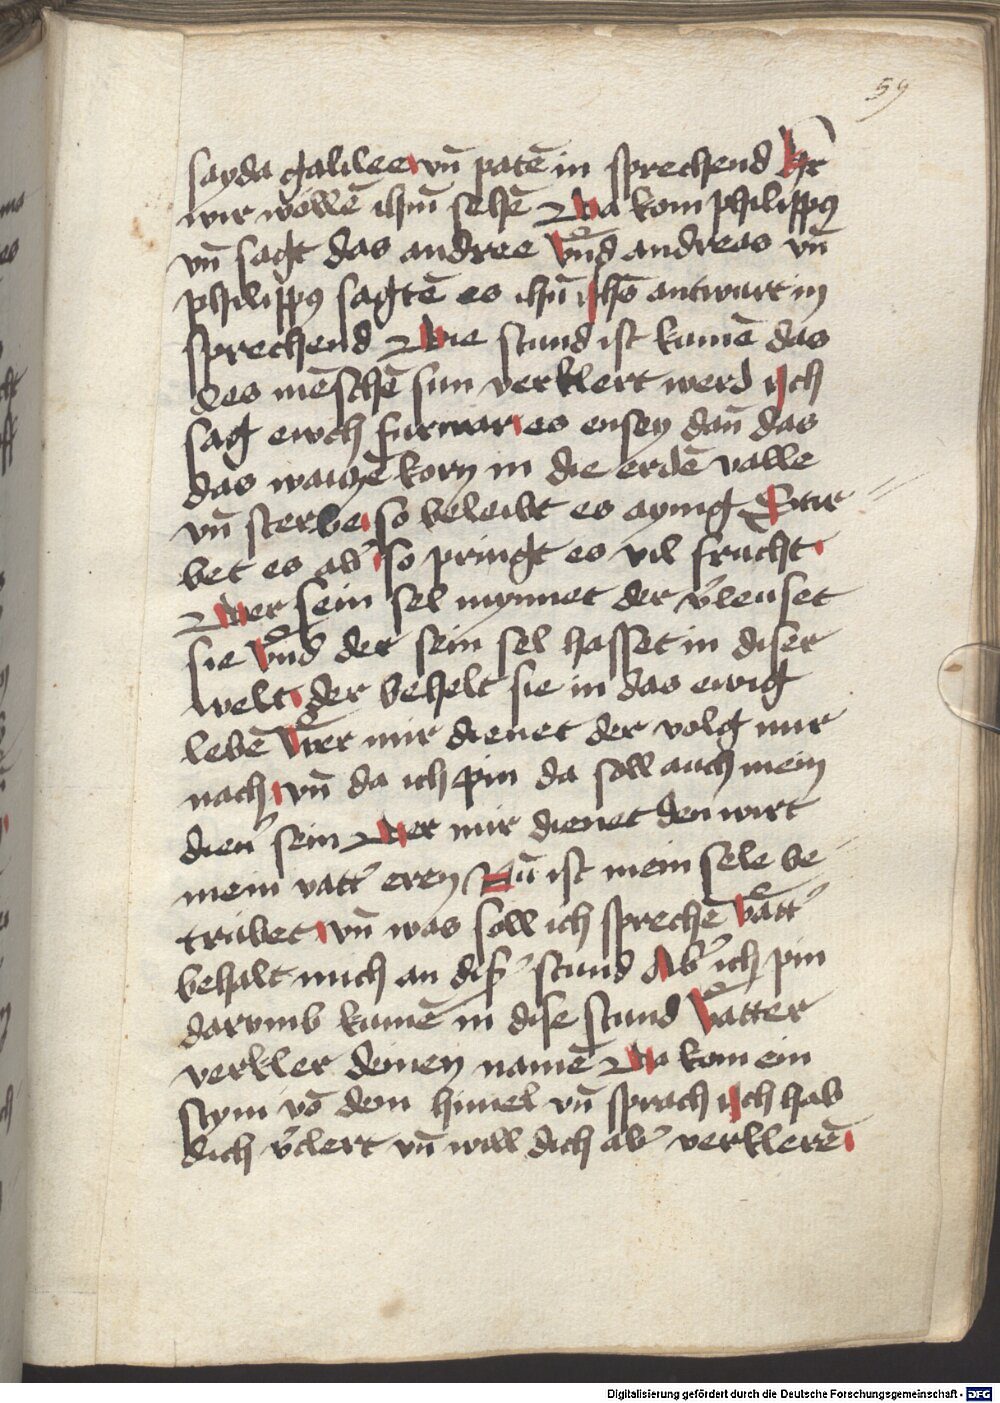 59
sayda galilee vn̄ patē in sprechend Hr̄
wir wōllē ihm̄ sehē Da kom philippꝰ
vn̄ sagt das andree Vnd andreas vn̄
philippꝰ sagtē es ihū ihs̄ antwurt in
sprechend Die stund ist kumē das
des mēschē sun verklert werd Ich
sag ewch furwar es ensey dan̄ das
das waiczē korn in die erdē valle
vn̄ sterbe so beleibt es aynig Stir
bet es ab' so pringt es vil frucht
Wer sein sel mynnet der v'leuset
sie Vnd der sein sel hasset in diser
welt der behelt sie in das ewig
lebē Wer mir dienet der volg mir
nach vn̄ da ich pin da soll auch mein
dien' sein Wer mir dienet den wirt
mein vatt' eren Nū ist mein sele be
trubet vn̄ was soll ich sprechē Vatt'
behalt mich an dis' stund Ab' ich pin
darvmb kumē in dise stund Vatter
verkler deinen namē Da kom ein
stym vō dem himel vn̄ sprach Ich hab
dich v'clert vn̄ will dich ab' verklerē
Digitalisierung gefördert durch die Deutsche Forschungsgemeinschaft - DFG